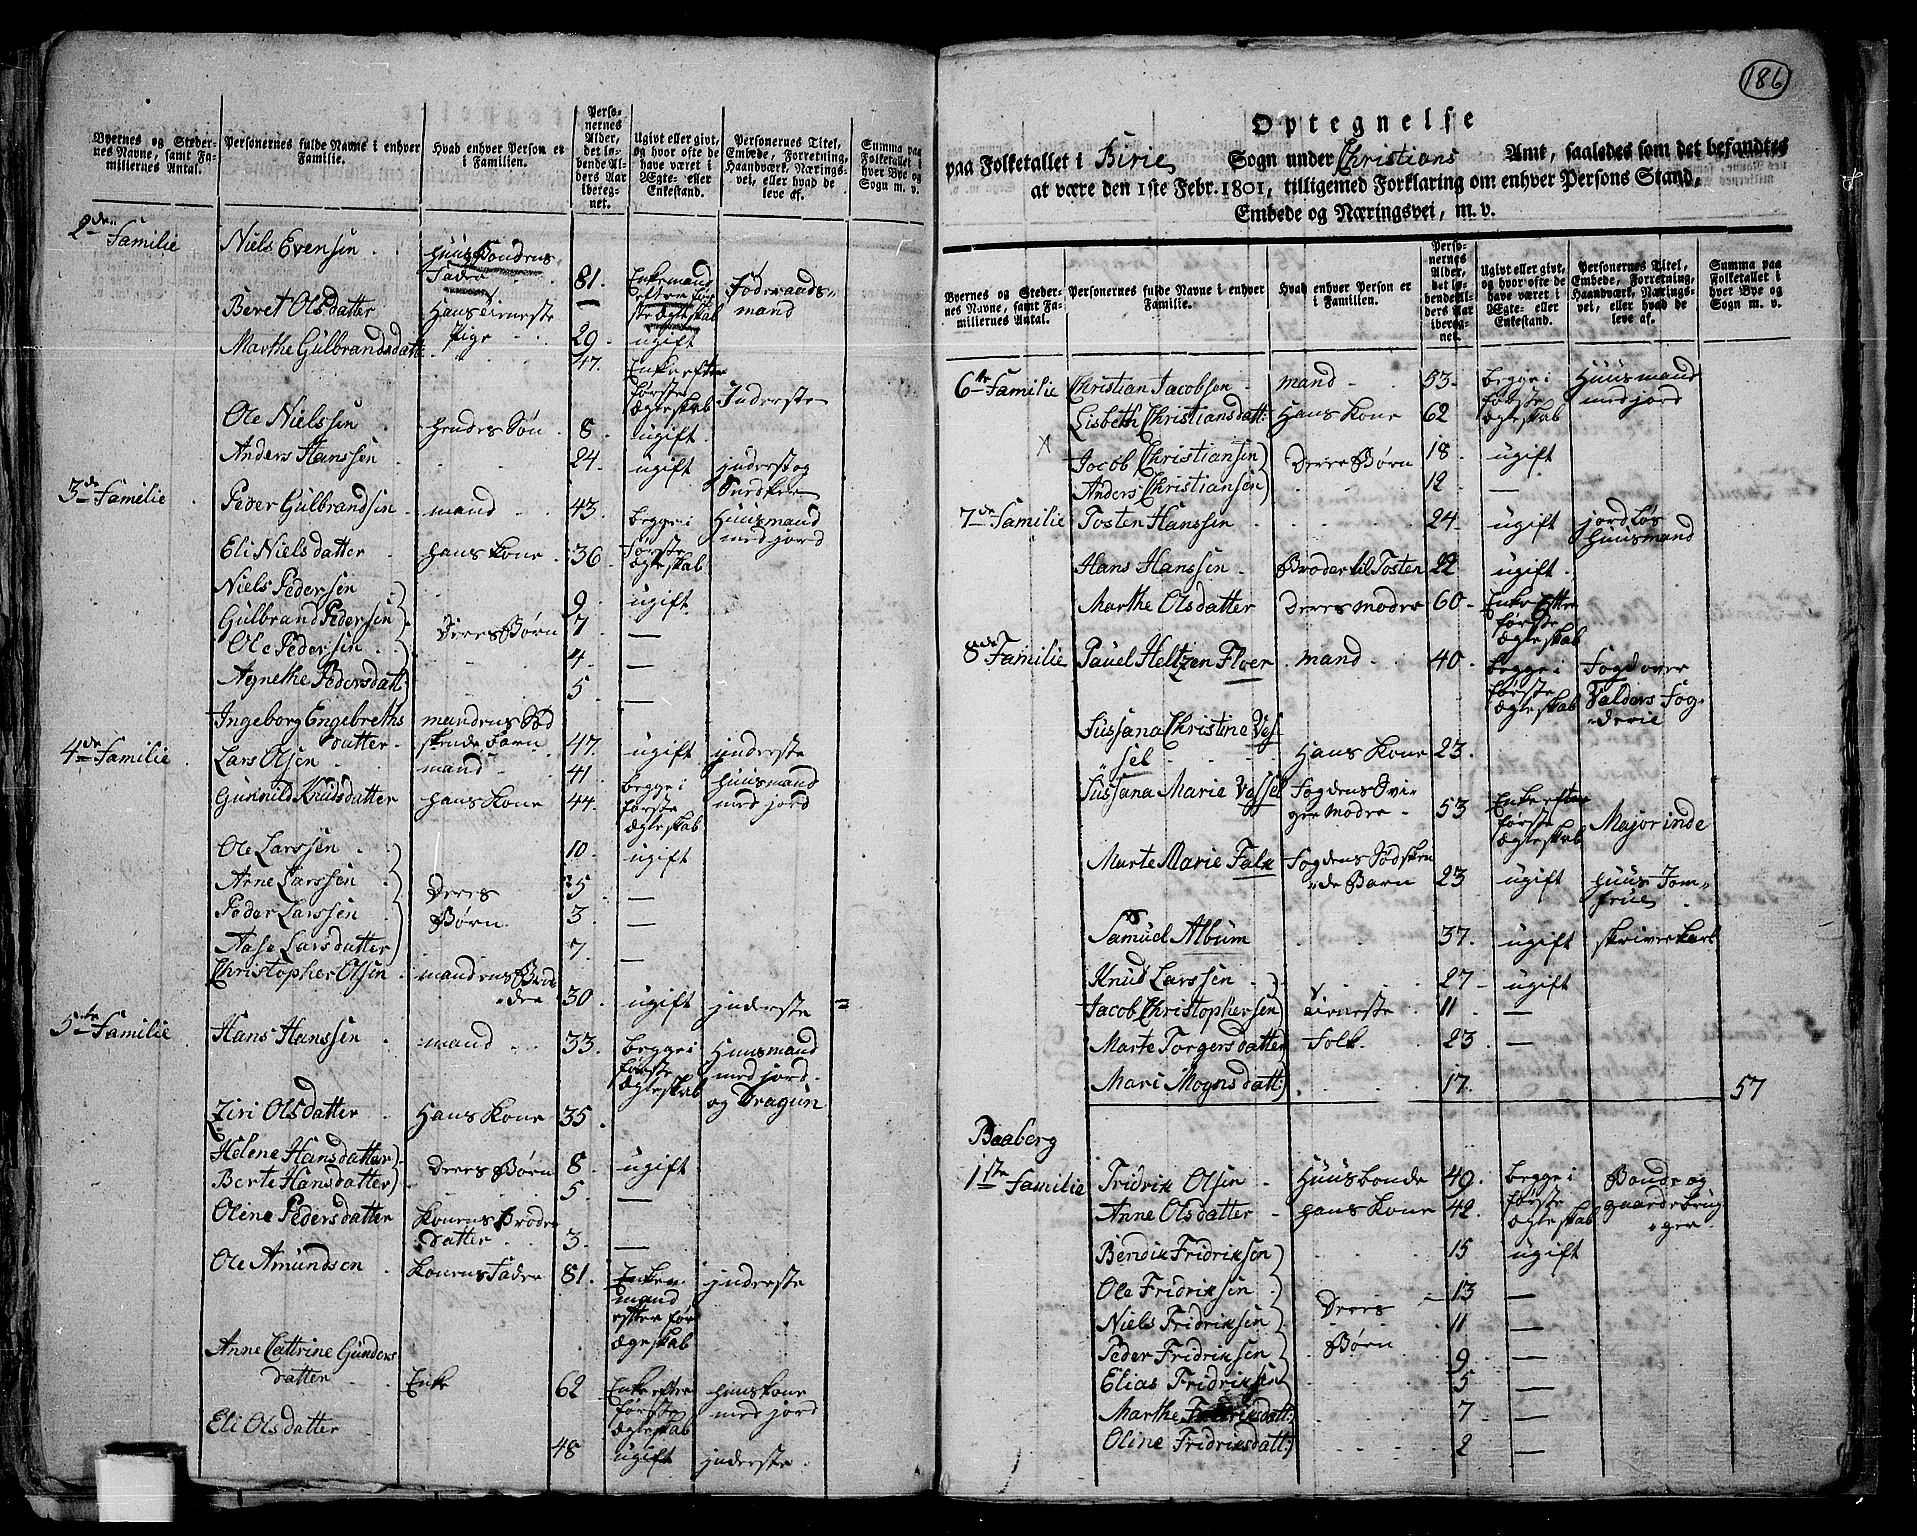 Byernes og Steder-
nes Navne, samt Fa-
milliernes Antal.
Personernes fulde Navne i enhver
Familie.
Hvad enhver Person er
i Familien.
Perso-
nernes
Alder,
det lø-
bende Al-
ders Aar
iberegn-
net.
Ugivt eller givt,
og hvor ofte de
have været i
Ægte- eller
Enkestand.
Personernes Titel,
Embede, Forretning,
Haandværk, Nærings-
vei, eller hvad de
leve af.
Summa paa
Folketallet i
hver Bye og
Sogn m. v.
2de Familie Niels Evensen Huusbondens Fader 81. Enkemand efter første ægteskab Føderaads mand
Beret Olsdatter Hans tieneste Pige 29. ugift
Marthe Gülbrandsdatt: 47. Enke efter første ægteskab Inderste
Ole Nielssen hendes Søn 8. ugift
Anders Hanssen 24. ugift inderst og
3de Familie Peder Gülbrandsen mand 43. begge i første ægteskab Huusmand med jord
Eli Nielsdatter hans Kone 36.
Niels Pedersen 9. ugift
Gülbrand Pedersen Deres Børn 7. —
Ole Pedersen 4. —
Agnethe Pedersdatt: 5. —
Ingeborg Engebreths datter mandens Sødskende barn 47. ugift inderste
4de Familie Lars Olsen mand 41. begge i første ægteskab Huusmand med jord
Gunnild Knudsdatter hans Kone 44.
Ole Larssen 10. ugift
Arne Larssen Deres 5. —
Peder Larssen Børn 3. —
Aase Larsdatter 7. —
Christopher Olsen mandens Bro der 30. ugift inderste =
5te Familie Hans Hanssen mand 33. begge i første ægteskab Huusmand med jord og Dragun
Ziri Olsdatter Hans Kone 35.
Helene Hansdatter Deres Børn 8. ugift
Berte Hansdatter 5. —
Oline Pedersdatter Konens Broder datter 3. —
Ole Amündsen Konens Fader 81. Enkemand efter før ægteskab inderste
Anne Cattrine Gunders datter Enke 62 Enke efter første ægteskab huuskone med jord
Eli Olsdatter 48 ugift inderste
186
Optegnelse
paa Folketallet i Birie Sogn under Christians Amt, saaledes som det befandtes
at være den 1ste Febr. 1801, tilligemed Forklaring om enhver Persons Stand,
Embede og Næringsvei, m. v.
Byernes og Steder-
nes Navne, samt Fa-
milliernes Antal.
Personernes fulde Navne i enhver
Familie.
Hvad enhver Person er
i Familien.
Perso-
nernes
Alder,
det lø-
bende Al-
ders Aar
iberegn-
net.
Ugivt eller givt,
og hvor ofte de
have været i
Ægte- eller
Enkestand.
Personernes Titel,
Embede, Forretning,
Haandværk, Nærings-
vei, eller hvad de
leve af.
Summa paa
Folketallet i
hver Bye og
Sogn m. v.
6te Familie Christian Jacobsen mand 53. begge i første ægteskab Huusmand med jord
Lisbeth Christiansdatt: Hans Kone 62
Jacob Christiansen Deres Børn 18. ugift
Anders Christiansen 12. —
7de Familie Tosten Hanssen 24. ugift jordløs Huusmand
Hans Hanssen Broder til Tosten 22 ugift
Marthe Olsdatter Deres moder 60 Enke efter første ægteskab
8de Familie Pauel Heltzen Floer mand 40. begge i første ægteskab Fogd over Valders Fogderie
Sussana Christine Vessel Hans Kone 23.
Sussana Marie Vessel Fogdens Svigermoder 53 Enke efter første ægteskab Majorinde
Marte Marie Falk Fogdens Sødskende Barn 23 ugift huus Jomfrue
Samuel Album 37. ugift skriverkarl
Knud Larssen 27. ugift
Jacob Christophersen tieneste 11. —
Marte Torgersdatter Folk 23. —
Mari Mognsdatt: 17. — 57
Baaberg
1ste Familie Fridrik Olsen Huusbonde 49. begge i første ægteskab Bonde og gaardebruger
Anne Olsdatter hans Kone 42.
Bendik Fridriksen 15 ugift
Ole Fridriksen Deres 13 —
Niels Fridriksen 11 —
Peder Fridriksen Børn 9. —
Elias Fridriksen 5. —
Marthe Fridriksdatt: 7. —
Oline Fridriksdatt: 2 —